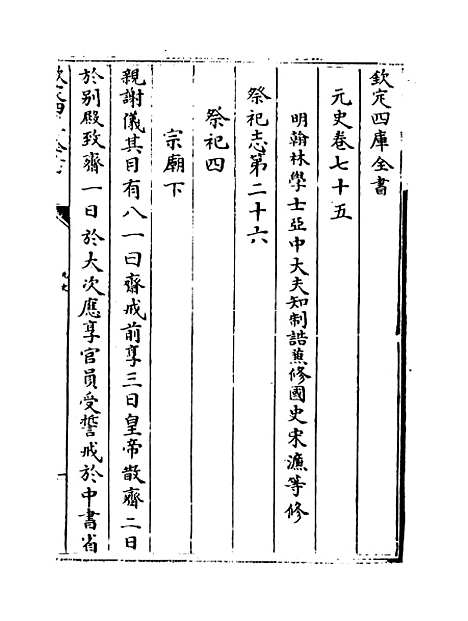 欽定四庫全書
元史卷七十五
明翰林學士亞中大夫知制誥兼修國史宋濂等修
祭祀志第二十六
祭祀四
宗廟下
親謝儀其目有八一曰齋戒前享三日皇帝散齋二日
於別殿致齋一日於大次應享官員受誓戒於中書省
元史
一